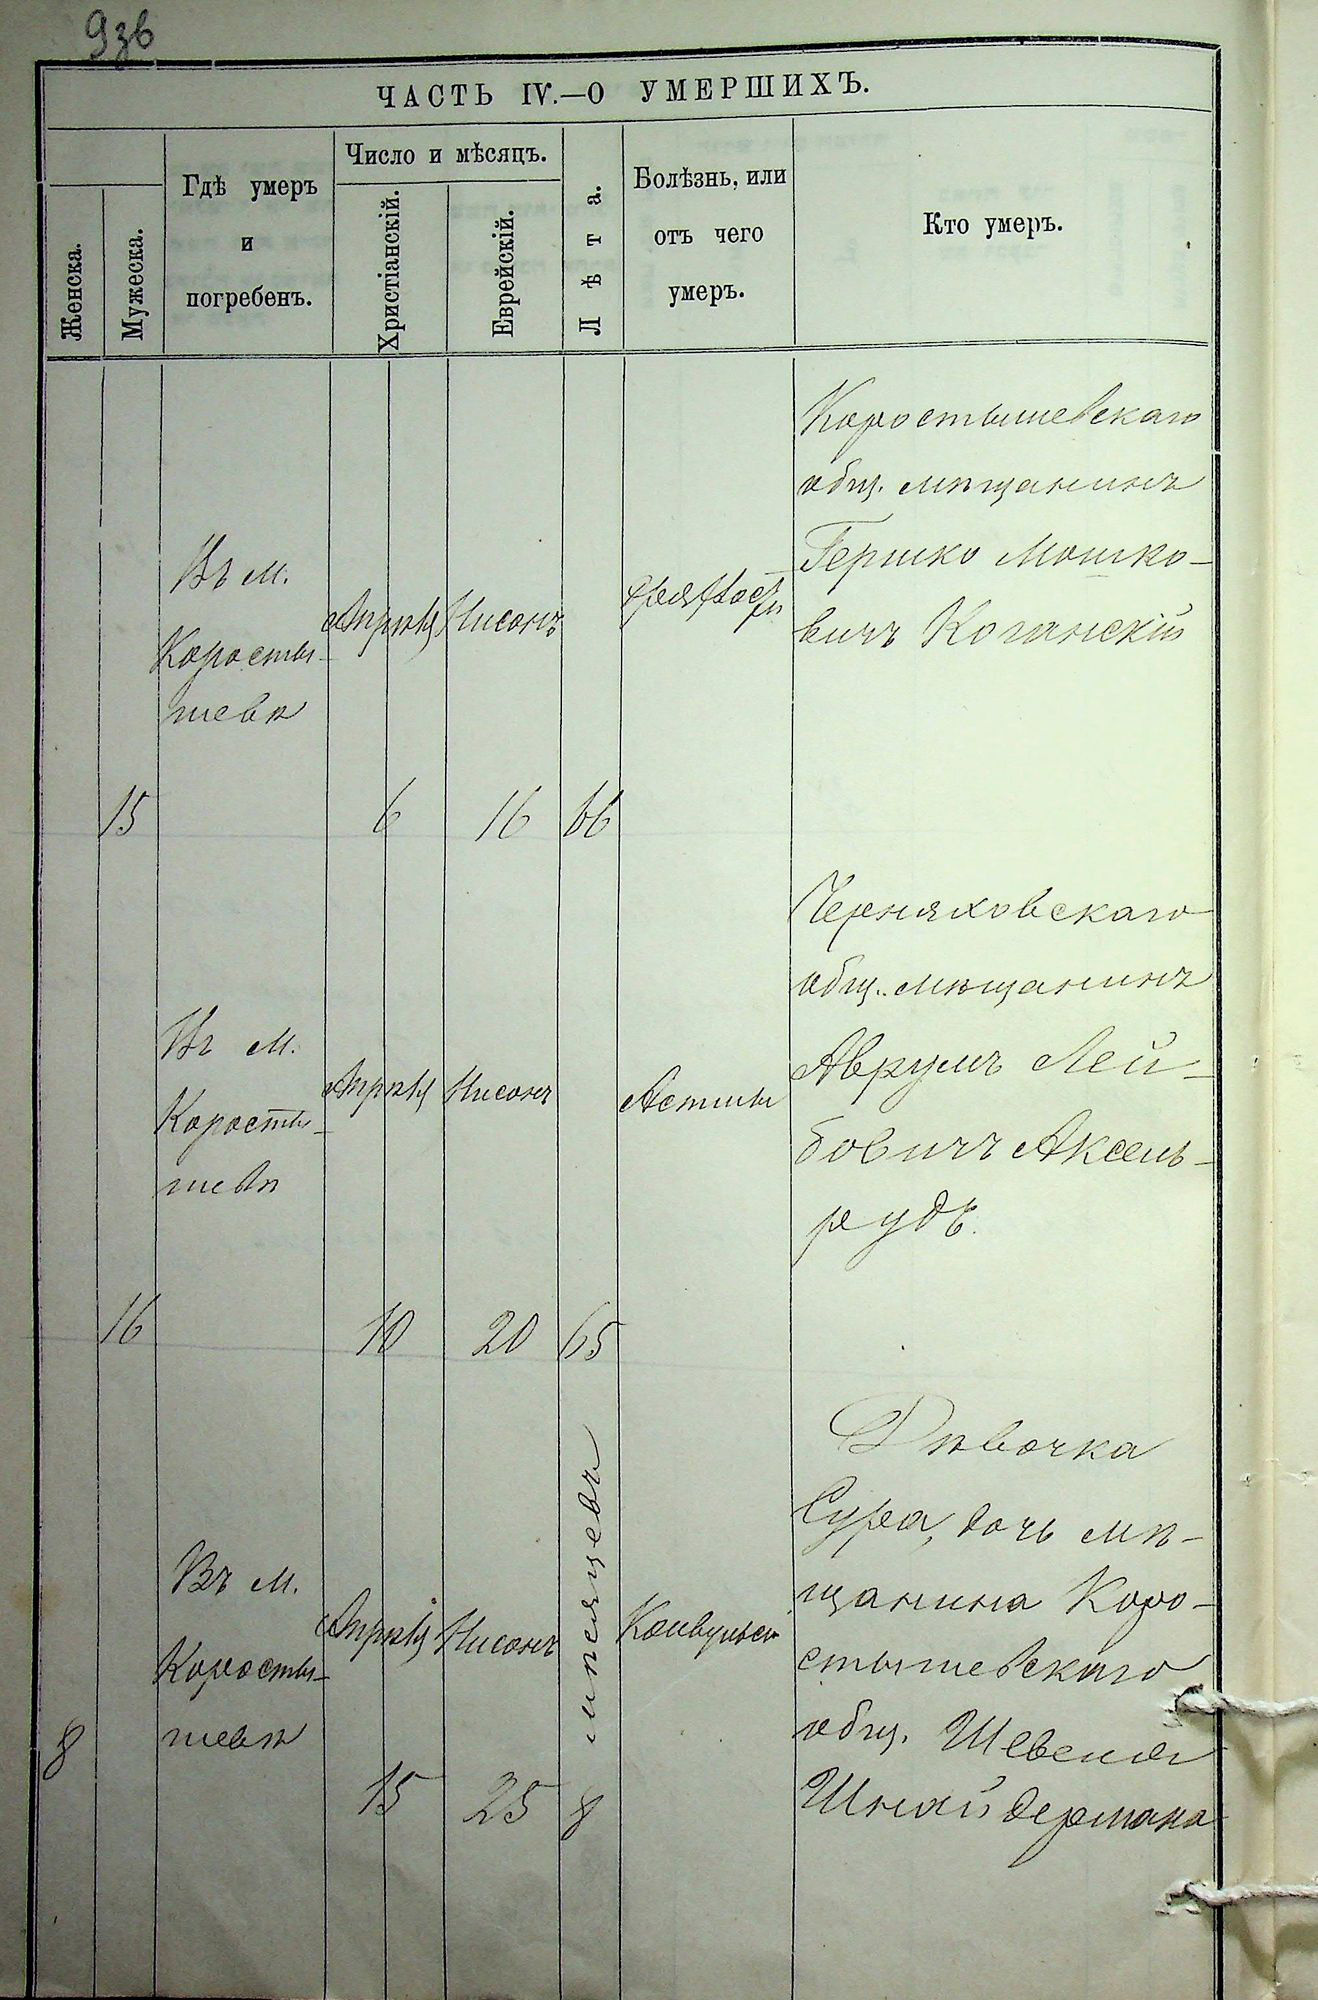 93в
ЧАСТЬ IV.—О УМЕРШИХЪ.
Женска.
Мужеска.
Гдѣ умеръ
и
погребенъ.
Число и мѣсяцъ.
Христіанскій.
Еврейскій.
Лѣта.
Болѣзнь, или
отъ чего
умеръ.
Кто умеръ.
15
Въ м.
Коросты-
шевѣ
Апрѣля
6
Нисонъ
16
66
Коростышевскаго
общ. мѣщанинъ
Гершко Мошко-
вичъ Коганскій
16
Въ м.
Коросты-
шевѣ
Апрѣля
10
Нисонъ
20
65
Астмы
Черняховскаго
общ. мѣщанинъ
Аврумъ Лей-
бовичъ Аксель-
рудъ.
8
Въ м.
Коросты-
шевѣ
Апрѣля
15
Нисонъ
25
8 мѣсяцевъ
Конвульсіи
Дѣвочка
Сура, дочь мѣ-
щанина Коро-
стышевскаго
общ. Шевеля
Шнайдермана